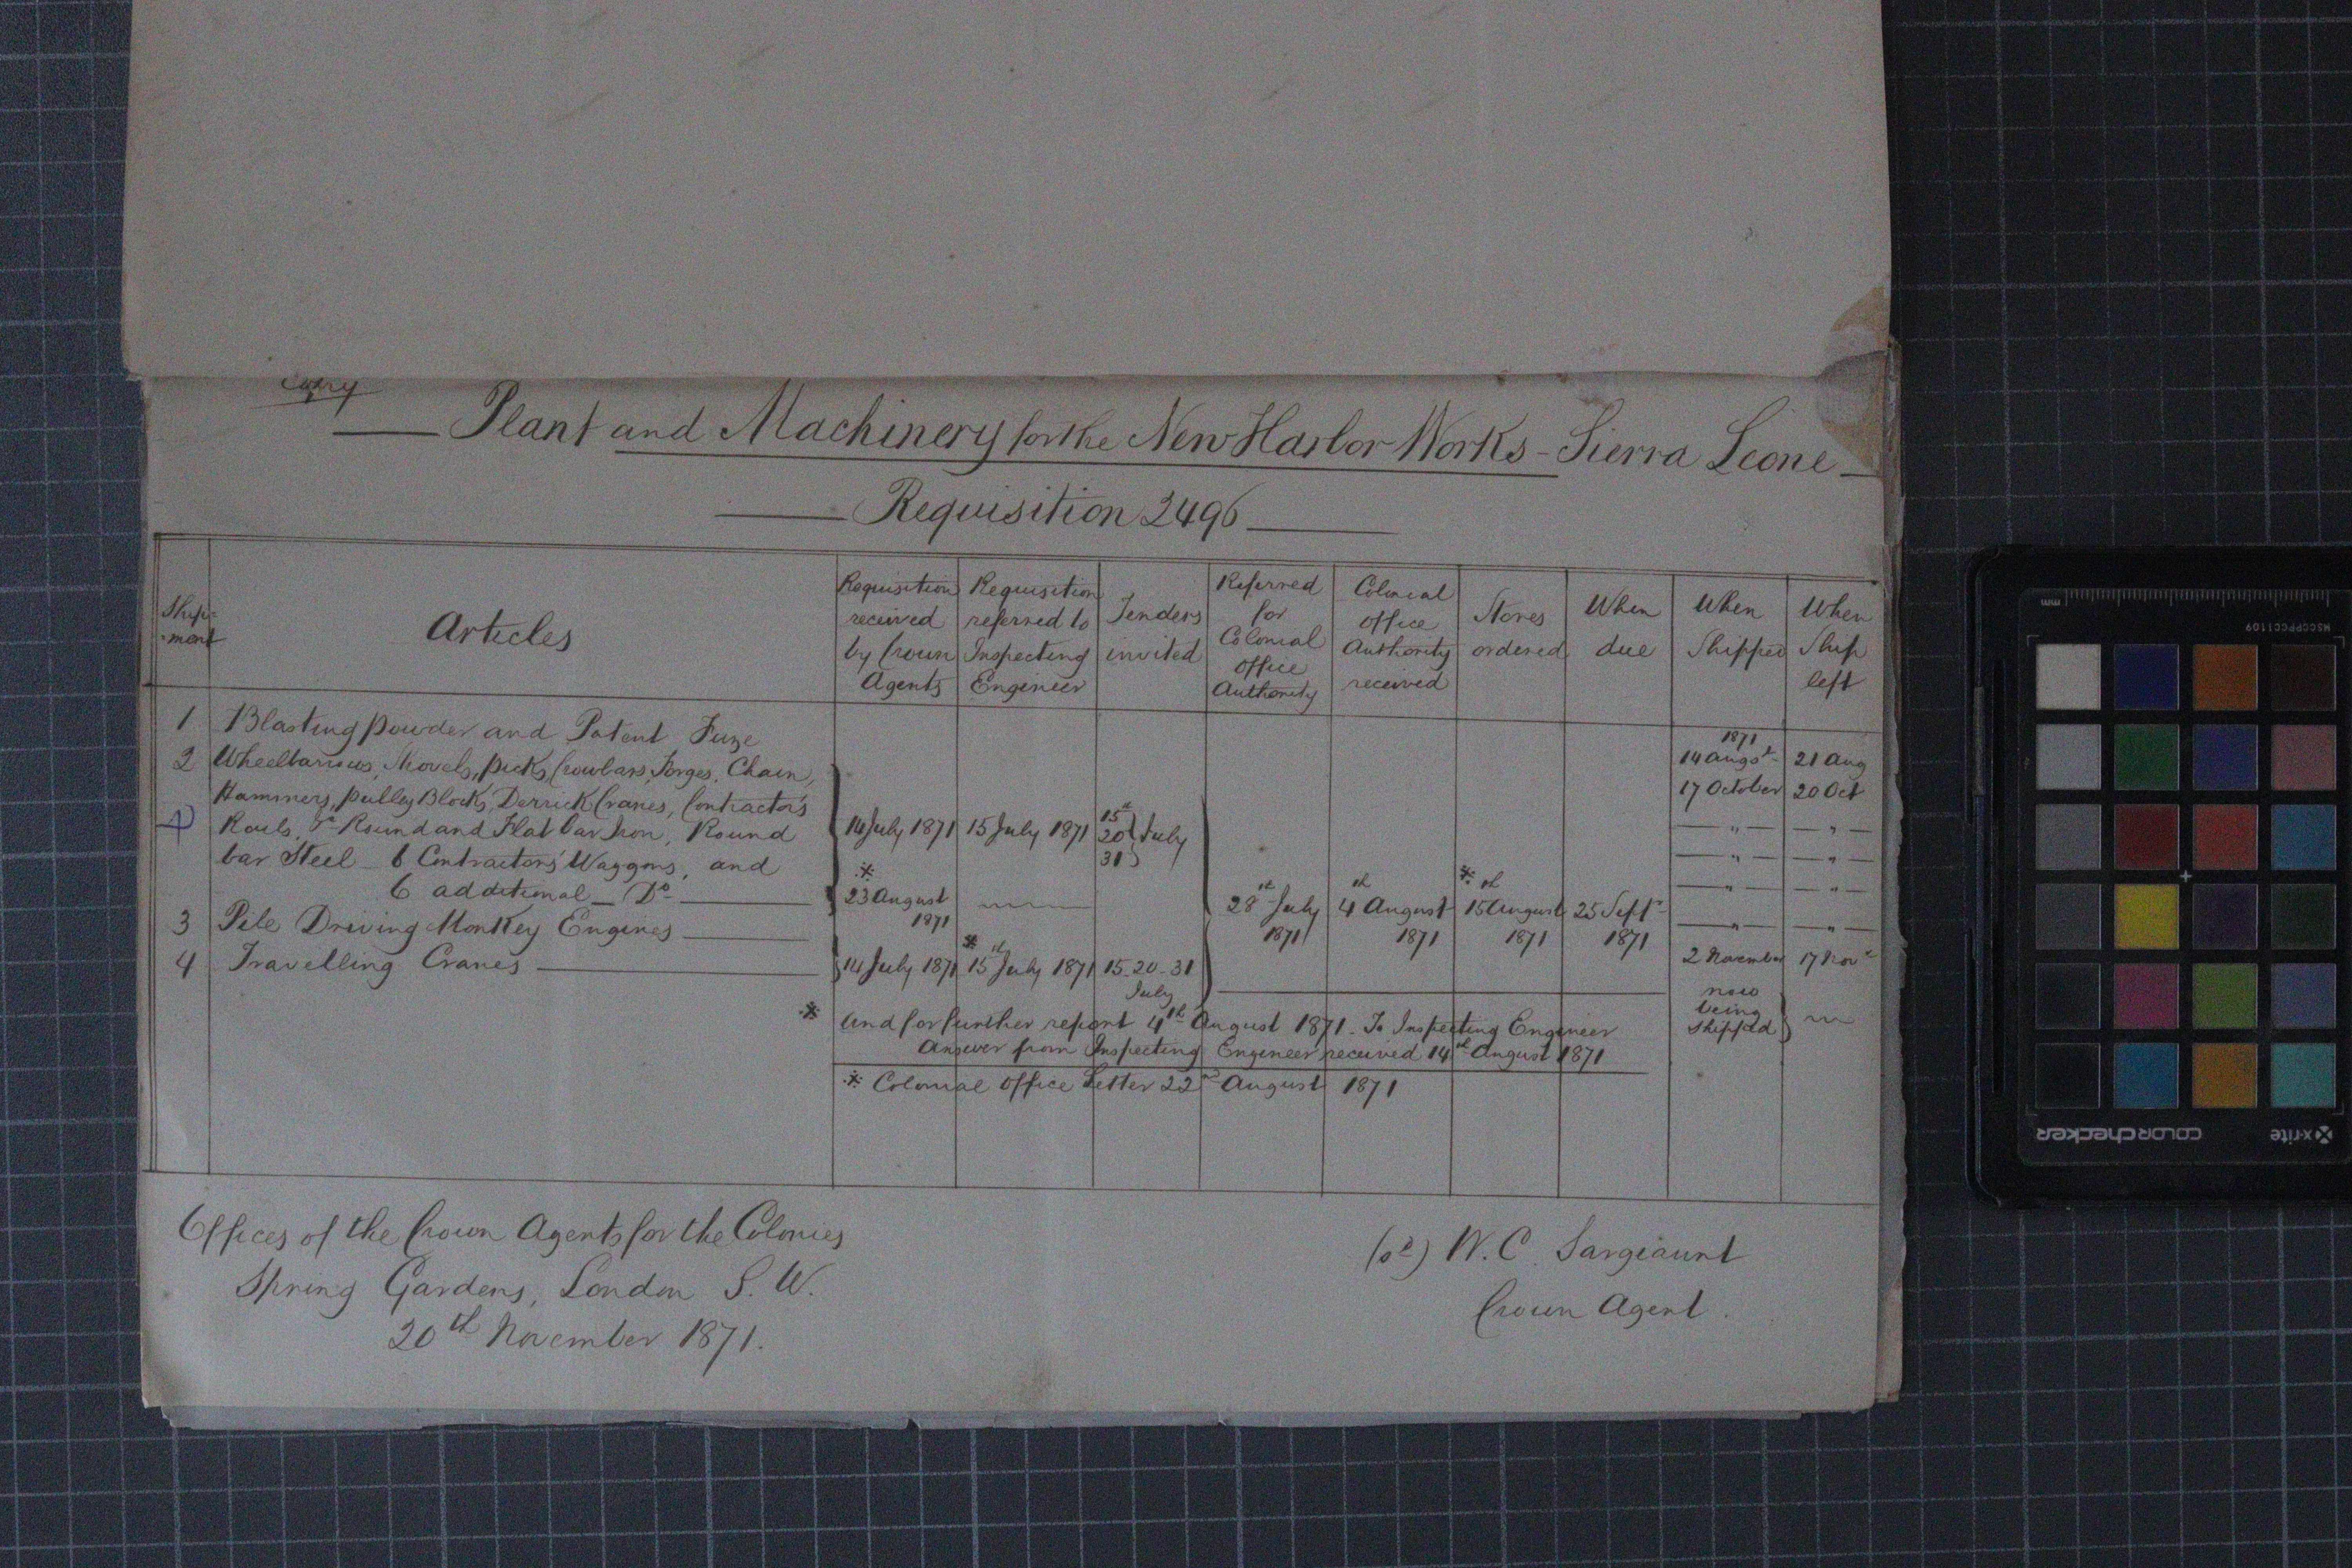 Copy
Plant and Machinery for the New Harbor Works - Sierra Leone
Requisition 2496
Ship-ment
Articles
Requisition received by Crown Agents
Requisition referred to Inspecting Engineer
Tenders invited
Referred for Colonial Office Authority
Colonial Office Authority received
Stores ordered
When due
When Shipped
When Ship left
1 Blasting powder and Patent Fuze
1871
14 Augst 21 Aug
2 Wheelbarrows, Shovels, picks, Crowbars, Forges, Chain,
17 October 20 Oct
Hammers, pulley Blocks, Derrick Cranes, Contractors
— " — — " —
Rails, &c Round and Flat bar Iron, Round
14 July 1871 15 July 1871 15th 20 31 } July
— " — — " —
bar Steel - 6 Contractors' Waggons, and
— " — — " —
6 additional - Do
※ 23 August 1871
— " — — " —
28th July 1871 4th August 1871 ※ 15th August 1871 25 Septr 1871
3 Pile Driving Monkey Engines
2 November 17 Novr
4 Travelling Cranes
14 July 1871 ※ 15th July 1871 15-20-31 July
now being shipped
※ and for further report 4th August 1871 - To Inspecting Engineer
Answer from Inspecting Engineer received 14th August 1871
※ Colonial Office Letter 22nd August 1871
Offices of the Crown Agents for the Colonies
Spring Gardens, London S.W.
20th November 1871.
W.C. Sargeaunt
Crown Agent.
MSCCPPCC1109
mm
colorchecker
x-rite